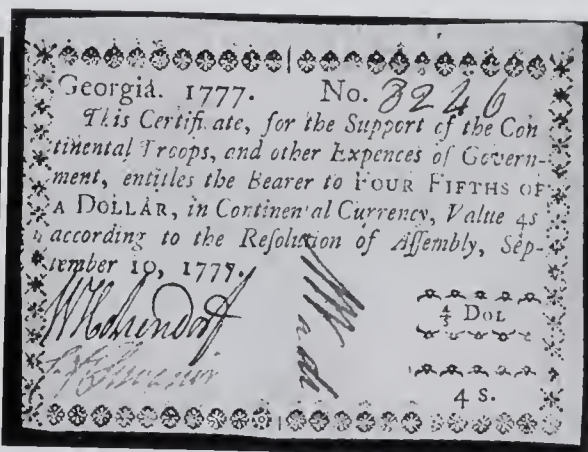 Georgia. 1777. No. 3246
This Certificate, for the Support of the Con
tinental Troops, and other Expences of Govern-
ment, entitles the Bearer to FOUR FIFTHS OF
A DOLLAR, in Continental Currency, Value 4s
according to the Reſolution of Aſſembly, Sep-
tember 10, 1777.
Wade
4/5 DOL
4 s.